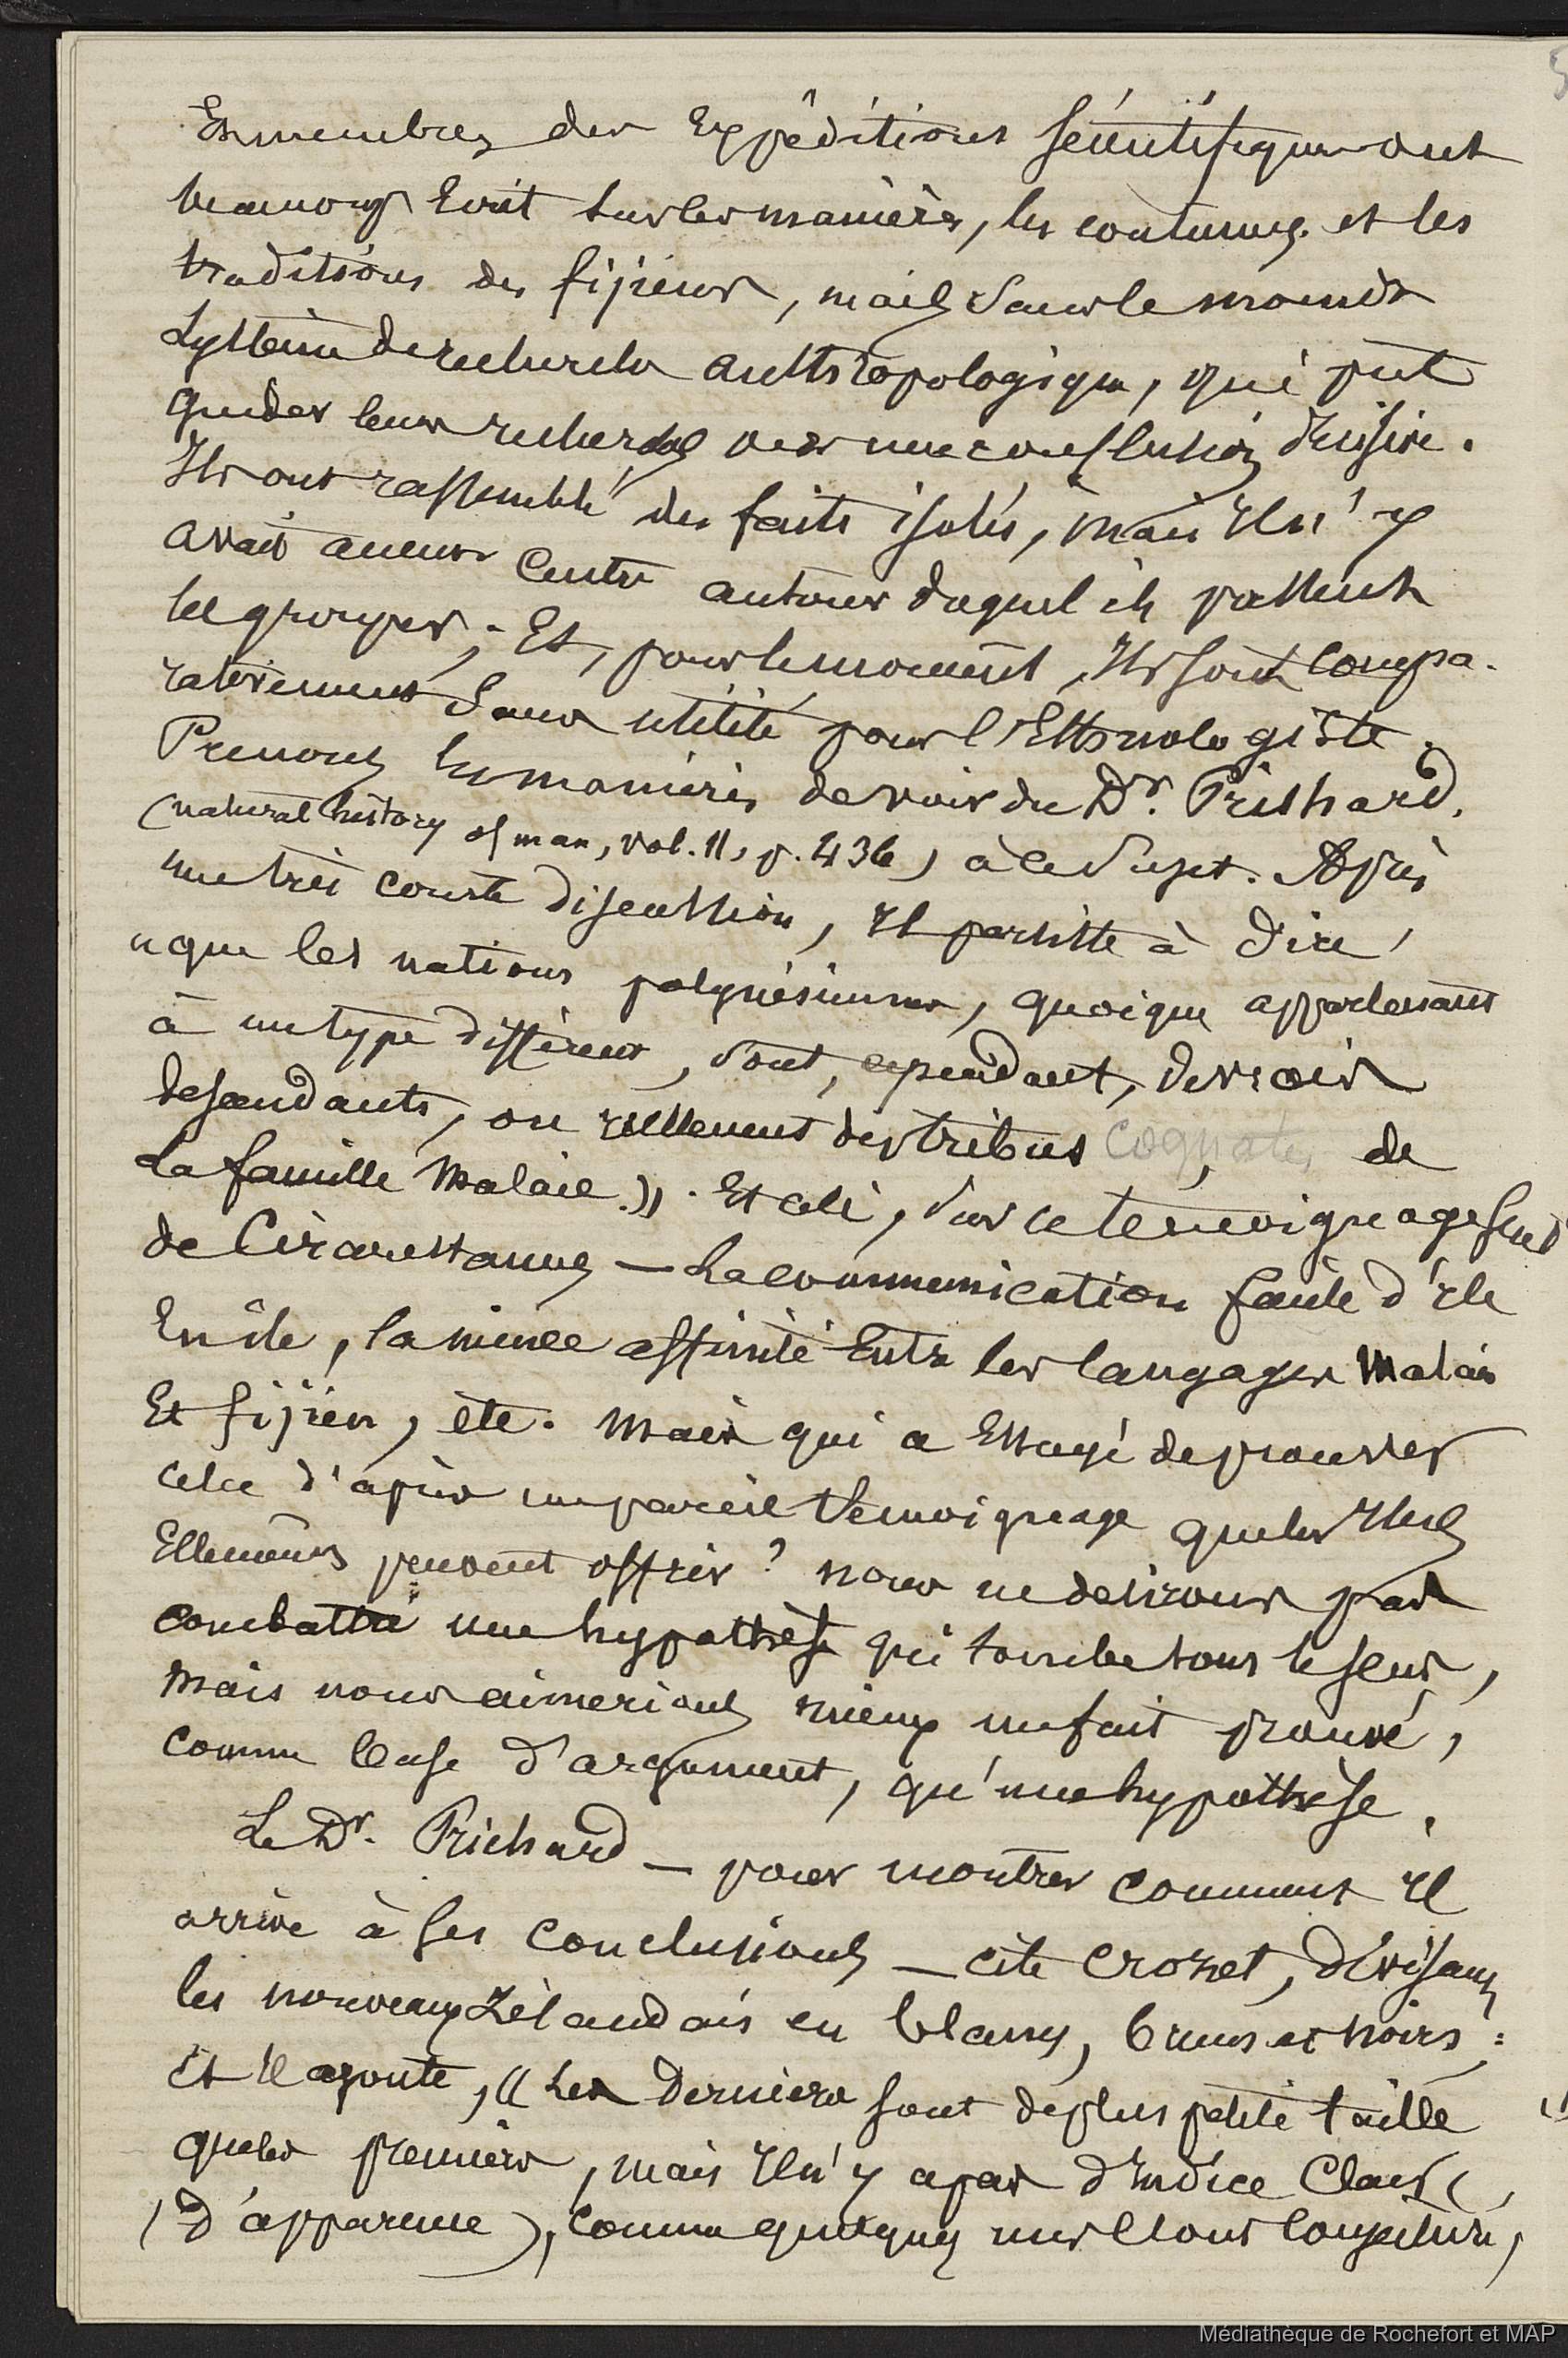 Les membres des Expéditions scientifiques ont
beaucoup Écrit sur les manières, les coutumes et les
traditions des fijiens, mais sans le moindre
système de recherche anthropologique, qui pût
guider leurs recherches vers une conclusion décisive.
Ils ont rassemblé des faits isolés, mais Il n'y
avait aucun Centre autour duquel ils pussent
les grouper; Et, pour le moment, Ils sont compa-
rativement sans utilité pour l'Ethnologiste.
Prenons les manières de voir du Dr. Prichard,
(natural history of man, vol. 11, p. 436) à ce sujet. Après
une très courte discussion, Il persiste à dire,
« que les nations polynésiennes, quoique appartenant
à un type différent, sont, cependant, de vrais
descendants, ou réellement des tribus cognates de
la famille Malaie ». Et celà, sur le témoignage seul
de Circonstances — La communication facile d'Ile
En île, la mince affinité Entre les langages Malais
Et fijien, etc. Mais qui a Essayé de prouver
cela d'après un pareil témoignage que les Iles
Elles-mêmes peuvent offrir? nous ne désirons pas
combattre une hypothèse qui tombe sous le sens,
mais nous aimerions mieux un fait prouvé,
comme base d'argument, qu'une hypothèse.
Le Dr. Prichard — pour montrer comment Il
arrive à ses conclusions — cite Crozet, divisant
les nouveaux Zélandais en blancs, bruns et noirs;
Et Il ajoute, « Les derniers sont de plus petite taille
que les premiers, mais Il n'y a pas d'Indice Clair
(d'apparence), comme quelques uns l'ont conjecturé,
Médiathèque de Rochefort et MAP